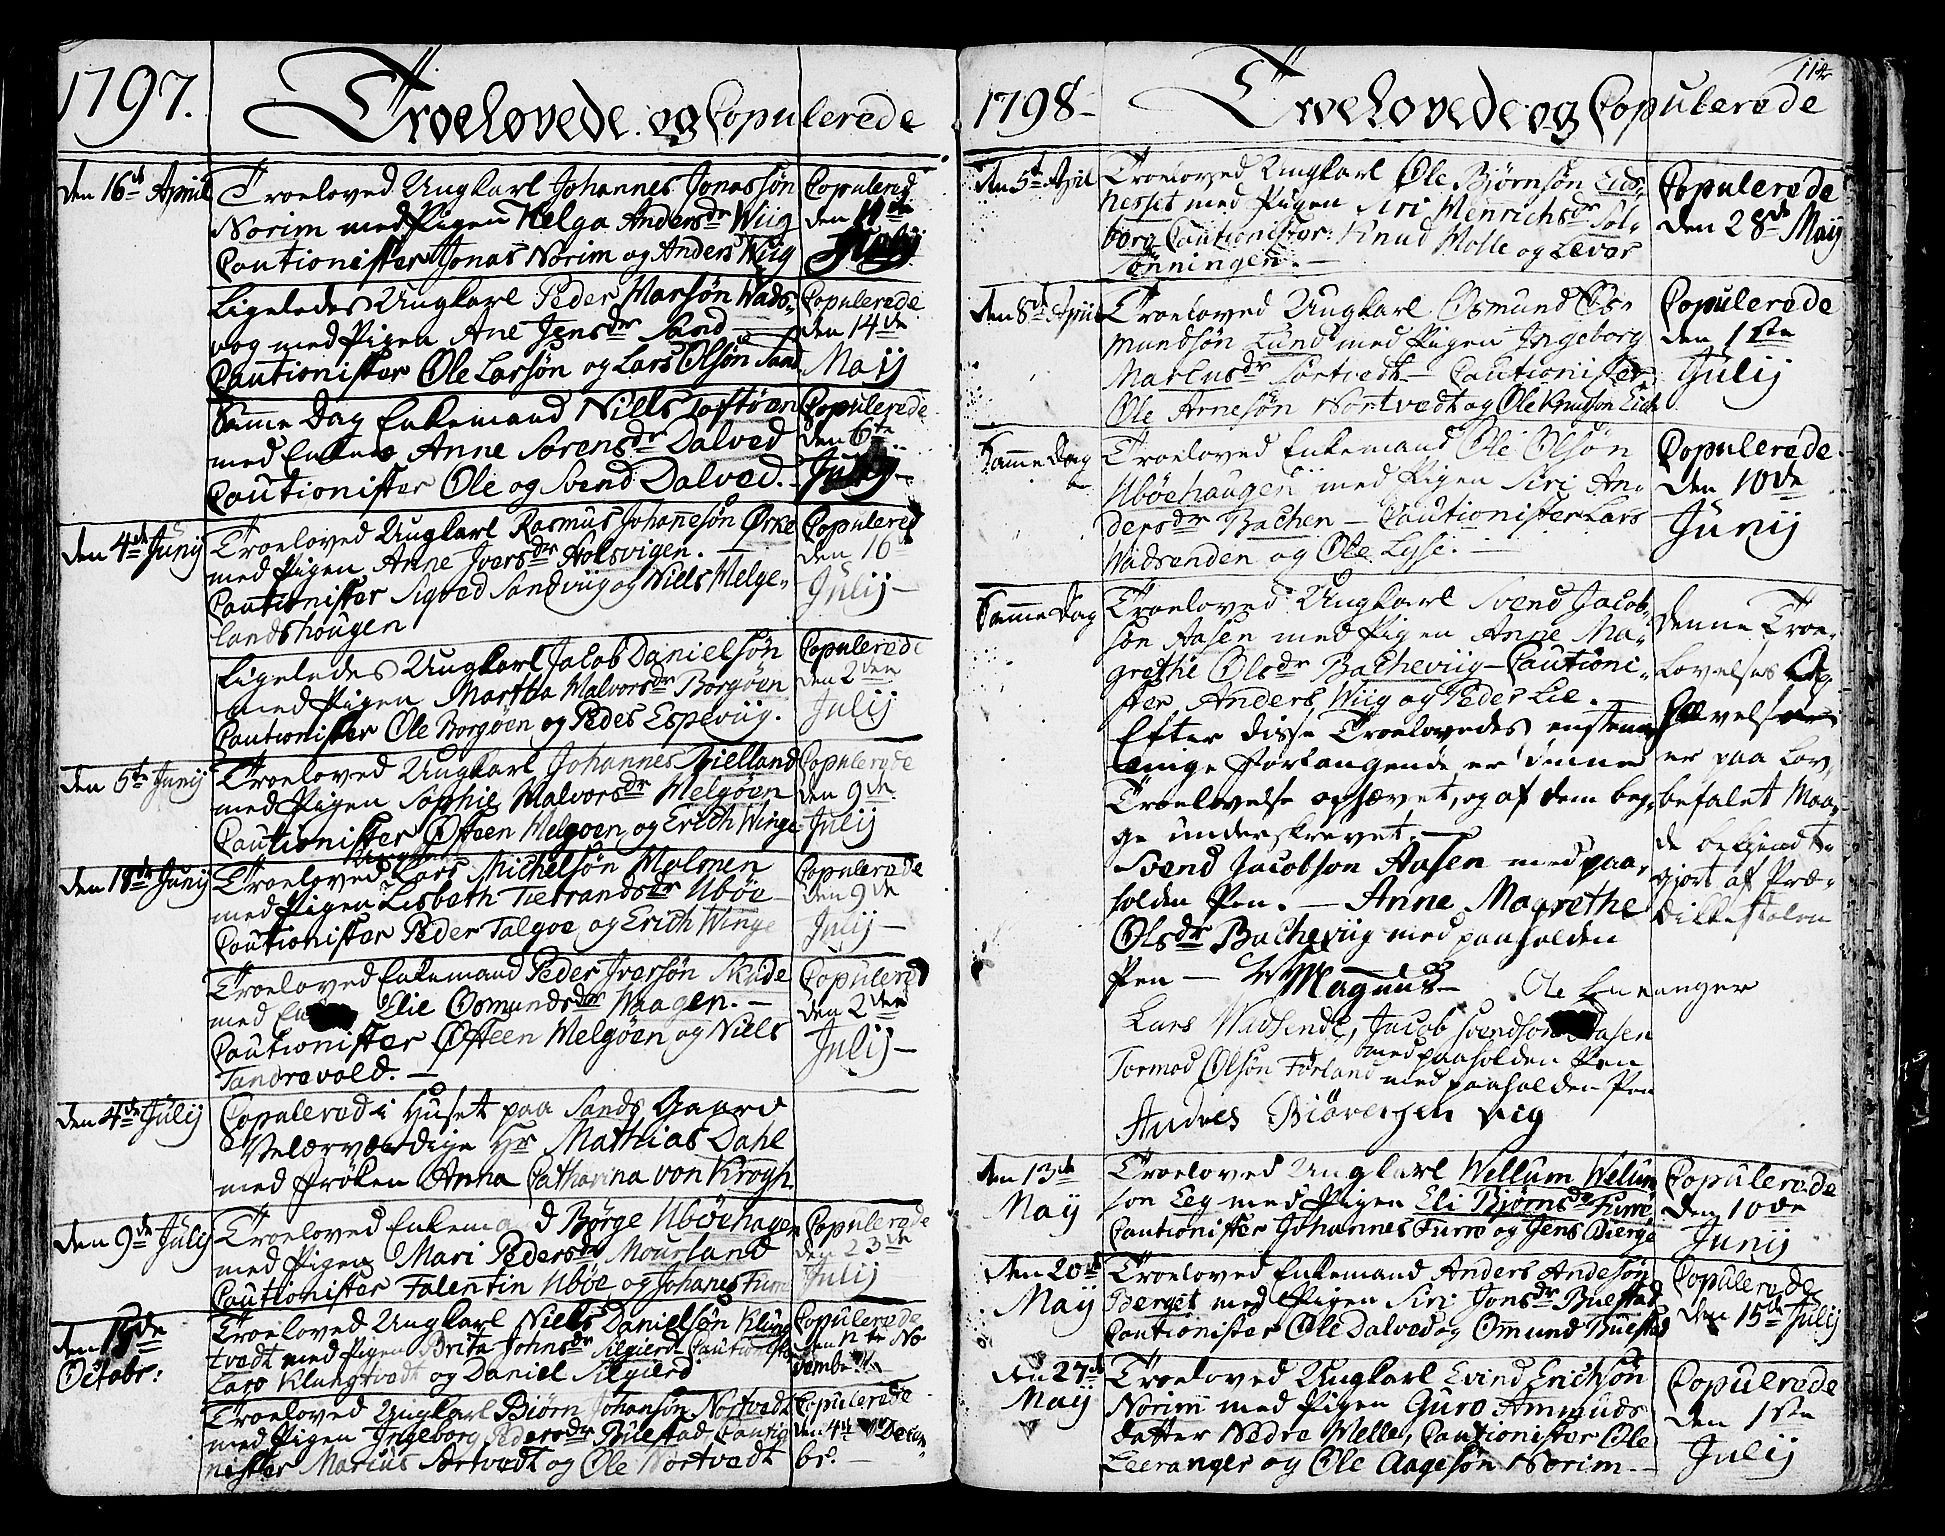 1797.
Troelovede og Copulerede
Den 16de April
Troeloved Ungkarl Johannes Jonassøn
Norim med Pigen Helga Andersdr Wiig
Cautionister Jonas Norim og Anders Wiig
Copulered
den 11te
Junij
Ligeledes Ungkarl Peder Marsøn Wads-
vog med Pigen Ane Jensdr Sand
Cautionister Ole Larsøn og Lars Olsøn Sand
Copulerede
den 14de
Maij
Samme Dag Enkemand Niells Toftøen
med Enken Anne Sørensdr Dalved
Cautionister Ole og Svend Dalved.
Copulerede
den 6te
Julij
Den 4de Junij
Troeloved Ungkarl Rasmus Johanesøn Ørke
med Pigen Anne Iversdr Holsvigen.
Cautionister Sigved Sandviig og Niels Helge-
landshougen
Copulered
den 16
Julij
Ligeledes Ungkarl Jacob Danielsøn
med Pigen Martha Malvorsdr Borgøen
Cautionister Ole Borgøen og Peder Espeviig.
Copulerede
den 2den
Julij
den 5te Junij
Troeloved Ungkarl Johannes Bielland
med Pigen Sophie Malvorsdr Helgøen
Cautionister Østeen Helgøen og Erich Winge
Copulerede
den 9de
Julij
Den 18de Junij
Troeloved Ungkarl Lars Michelsøn Holmen
med Pigen Lisbeth Tiebrandsdr Ubøe
Cautionister Peder Talgøe og Erich Winge
Copulerede
den 9de
Julij
Troeloved Enkemand Peder Iversøn Skude
med Elie Osmundsdr Waagen.
Cautionister Østeen Helgøen og Niels
Tandrevold.
Copulered
den 2den
Julij
Den 4de Julij
Copulered i Huset paa Sands Gaard
Velærværdige Hr Mathias Dahl
med Frøken Anna Catharina von Krogh
Den 9de Julij
Troeloved Enkemand Børge Ubøehagen
med Pigen Mari Pedersdr Mourland
Cautionister Falentin Ubøe og Johanes Furre
Copulerede
den 23de
Julij
Den 15de
Octobr:
Troeloved Ungkarl Niels Danielsøn Klung
tvedt med Pigen Brita Johnsdr Silgierd Cautionister
Lars Klungtvedt og Daniel Silgierd
Copulerede
den 1te No
vember
Troeloved Ungkarl Biørn Johansøn Nortvedt
med Pigen Ingeborg Pedersdr Buestad Cautio
nister Marius Sørtvedt og Ole Nortvedt
Copulerede
den 4de Decem
br.
114
1798
Troelovede og Copulerede
Den 5te April
Troeloved Ungkarl Ole Bjørnsøn Eids-
herset med Pigen Siri Henrichsdr Sol-
borg Cautionister: Knud Molle og Levor
Tønningen.
Copulerede
den 28de Maij
den 8de April
Troeloved Ungkarl Osmund Os-
mundsøn Lund med Pigen Ingeborg
Markusdr Sørtvedt - Cautionister
Ole Arnesøn Nortvedt og Ole Knudsøn Eide
Copulerede
den 1ste
Julij
Samme Dag
Troeloved Enkemand Ole Olsøn
Ubøehaugen med Pigen Siri An-
dersdr Bachen - Cautionister Lars
Wadsenden og Ole Lyse.
Copulerede
den 10de
Junij
Samme Dag
Troeloved Ungkarl Svend Jacob-
søn Aasen med Pigen Anne Ma-
grethe Olsdr Bacheviig - Cautioni-
ster Anders Wiig og Peder Lie.
Efter disse Troelovedes eenstem
mige Forlangende er denne
Troelovelse ophævet, og af dem beg-
ge underskrevet.
Svend Jacobson Aasen med paa-
holden Pen. - Anne Magrethe
Olsdr Bacheviig med paaholden
Pen - Magnus Ole Eneranger
Lars Wadsende, Jacob Svendson Aasen
med paaholden Pen
Tormod Olsøn Førland med paaholden Pen
Anders Biørensen vig
Denne Troe-
lovelses Op
Hævelse
er paa Lov-
befalet Maa-
de bekiendt-
giort af Præ-
dikestolen
Den 13de
Maij
Troeloved Ungkarl Wellum Wellum
søn Eeg med Pigen Eli Bjørnsdr Furre
Cautionister Johannes Furre og Jens Bierge
Copulerede
den 10de
Junij
Den 20de
Maij
Troeloved Enkemand Anders Andesøn
Berget med Pigen Siri Jonsdr Buestad
Cautionister Ole Dalved og Omund Buestad
Copulerede
den 15de Julij
Den 27de
Maij
Troeloved Ungkarl Evind Erichsøn
Norim med Pigen Guro Ammunds
datter Nedre Melle, Cautionister Ole
Leeranger og Ole Aagesøn Norim.
Copulerede
den 1ste
Julij